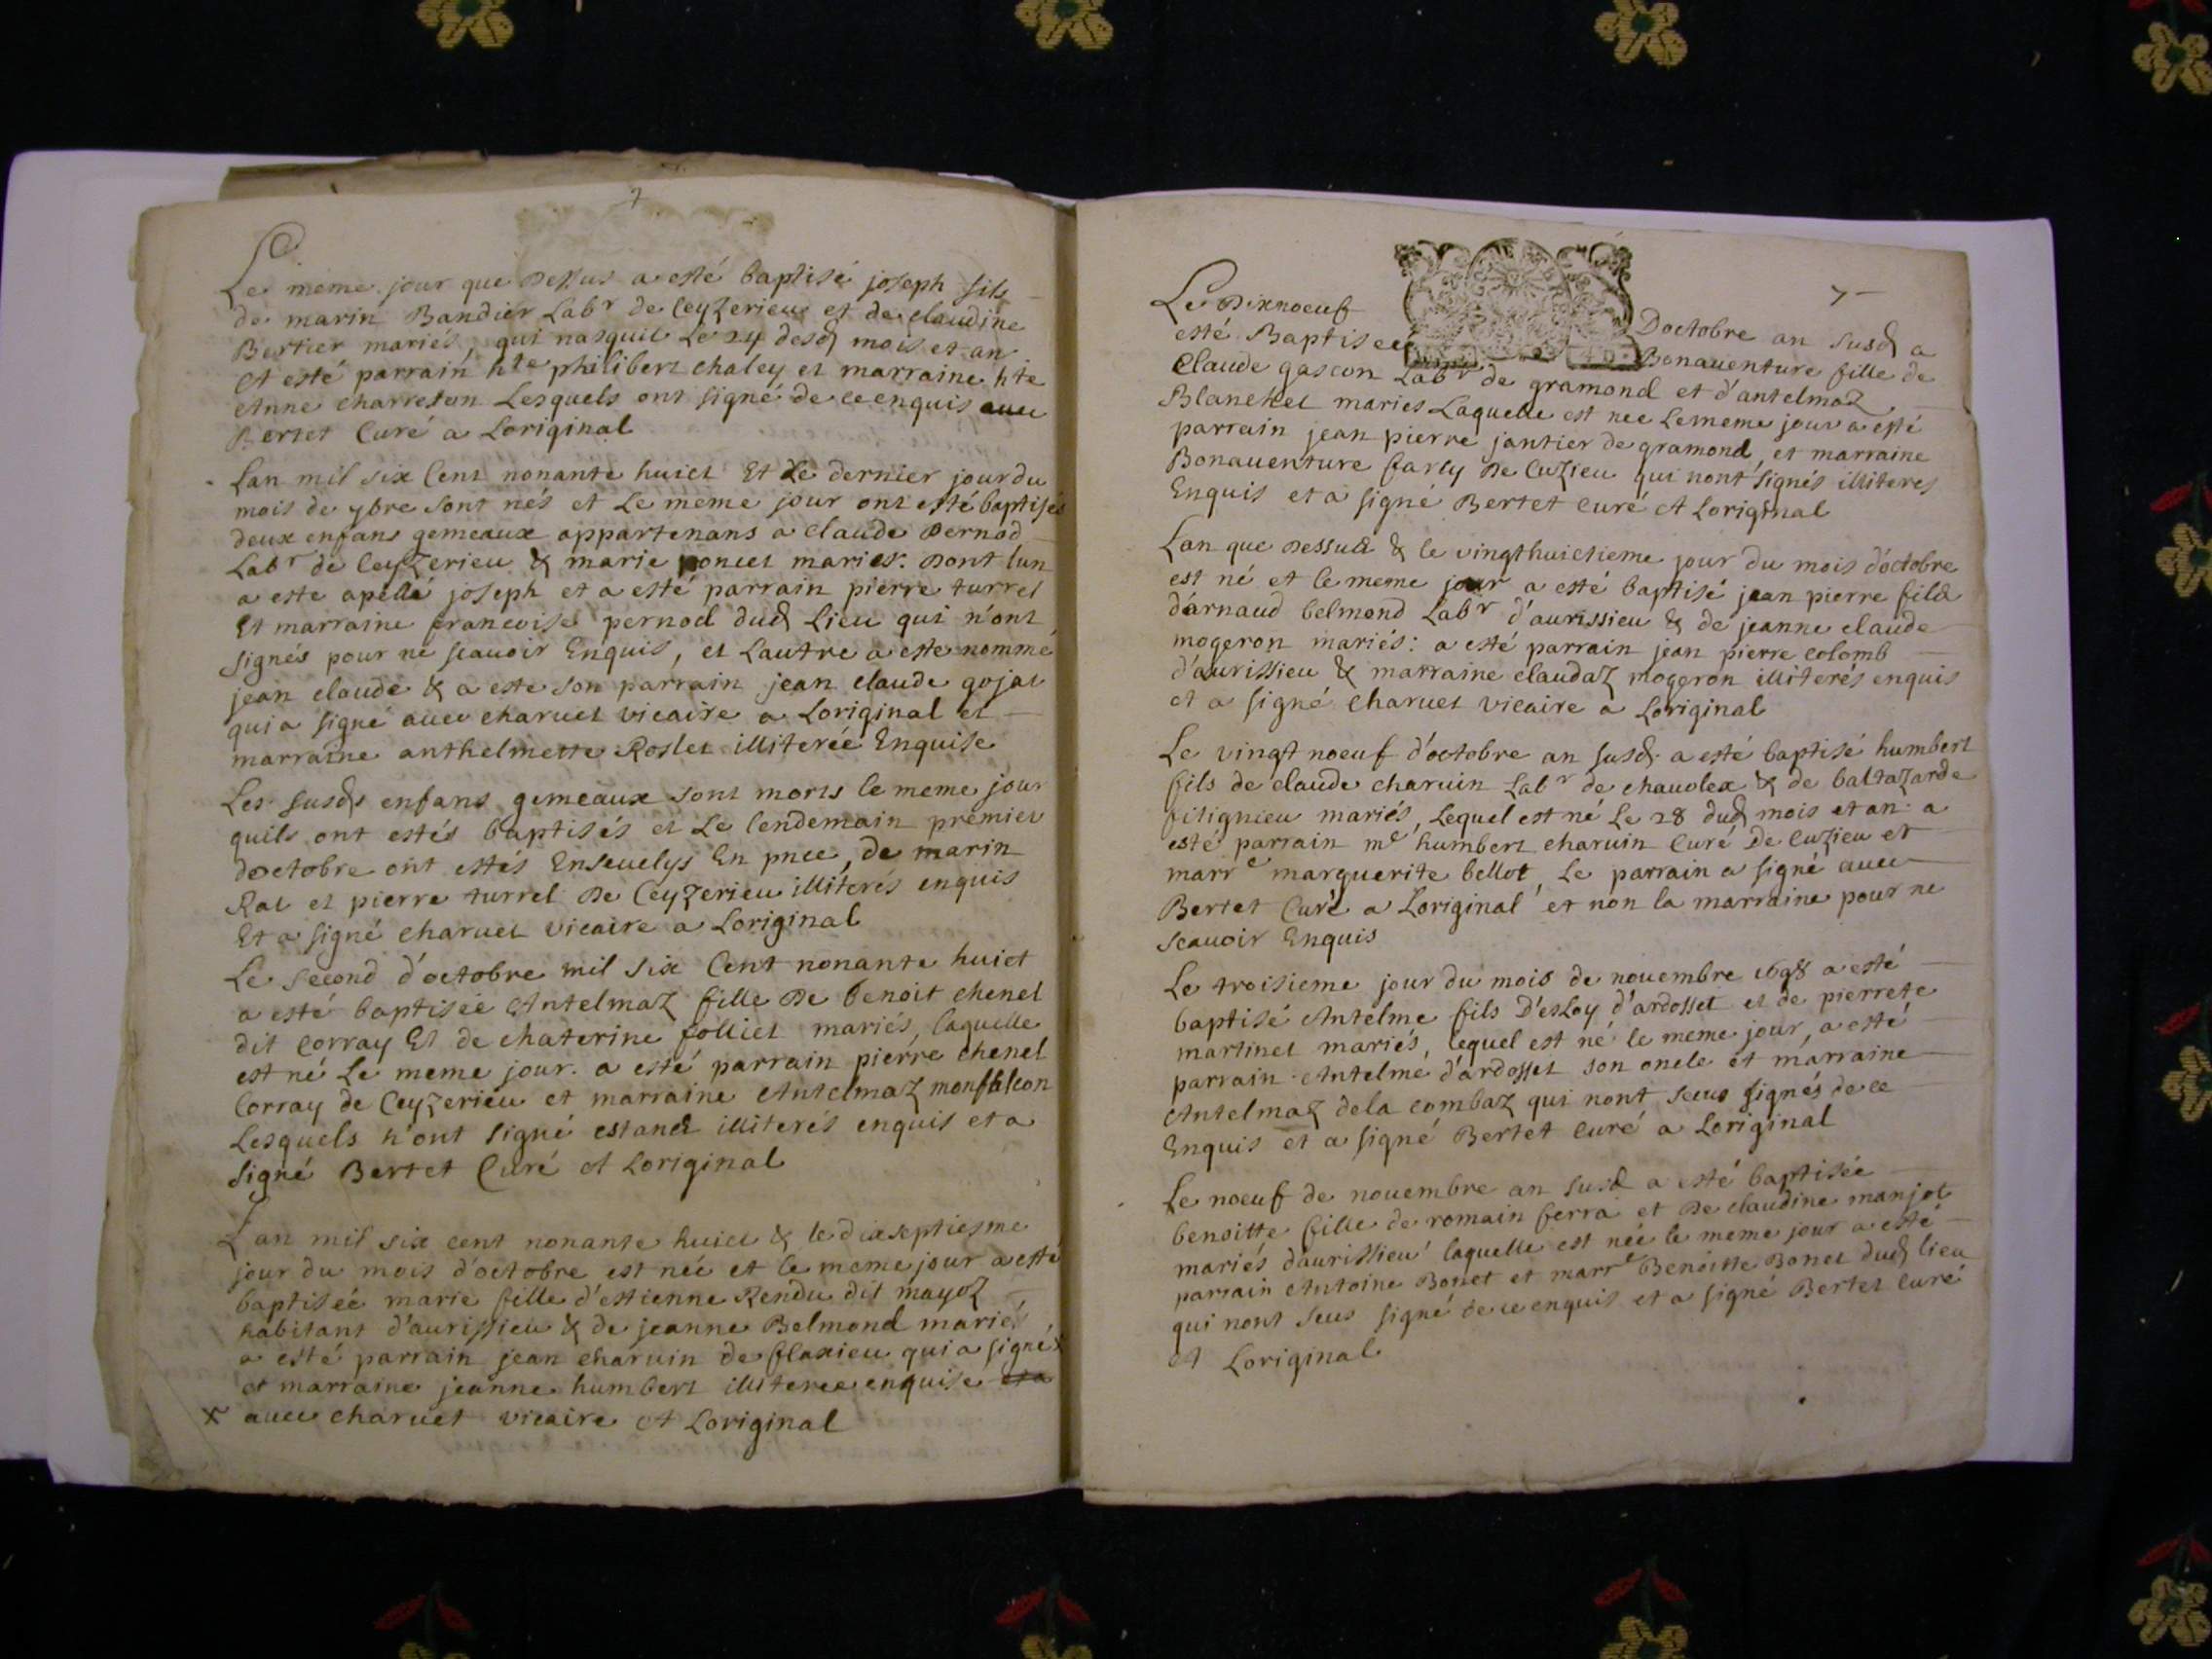 Le meme jour que Dessus a esté baptisé joseph fils
de marin Bandier Labr de Ceyzerieu et de claudine
Bertier mariés, qui nasquit Le 24 desd mois et an
et esté parrain hte philibert chaley et marraine hte
Anne charreton Lesquels ont signé de ce enquis auec
Bertet Curé a Loriginal
Lan mil six Cent nonante huict Et Le dernier jour du
mois de 7bre sont nés et Le meme jour ont esté baptisés
deux enfans gemeaux appartenans a claude Pernod
Labr de Ceyzerieu & marie poncet mariés. Dont lun
a este apellé joseph et a esté parrain pierre turrel
Et marraine francoise pernod dud Lieu qui n'ont
signés pour ne scauoir Enquis, et Lautre a este nommé
jean claude & a este son parrain jean claude gojat
qui a signé auec charuet vicaire a Loriginal et
marraine anthelmette Roslet illiterée Enquise
Les susds enfans gemeaux sont morts le meme jour
quils ont estés baptisés et Le lendemain premier
doctobre ont estés Enseuelys En pnce, de marin
Rat et pierre turrel De Ceyzerieu illiterés enquis
Et a signé charuet vicaire a Loriginal
Le second d'octobre mil six Cent nonante huict
a esté baptisée Antelmaz fille De benoit chenel
dit corray Et de chaterine folliet mariés, laquelle
est né Le meme jour. a esté parrain pierre chenel
Corray de Ceyzerieu et marraine Antelmaz monfalcon
Lesquels n'ont signé estand illiterés enquis et a
signé Bertet Curé A Loriginal
Lan mil six cent nonante huict & le dixseptiesme
jour du mois d'octobre est née et le meme jour a esté
baptisée marie fille d'estienne Rendu dit mayoz
habitant d'aurissieu & de jeanne Belmond mariés
a esté parrain jean charuin de flaxieu qui a signé x
et marraine jeanne humbert illiteree enquise et a
x auec charuet vicaire A Loriginal
7
Le Dixnoeuf Doctobre an susd a
esté Baptisée Bonauenture fille de
Claude gascon Labr de gramond et d'antelmaz
Blanchet mariés Laquelle est nee Le meme jour a esté
parrain jean pierre jantier de gramond et marraine
Bonauenture farcy De Cuzieu qui nont signés illiteres
Enquis et a signé Bertet Curé A Loriginal
Lan que Dessus & le vingthuictieme jour du mois d'octobre
est né et le meme jour a esté baptisé jean pierre fils
d'arnaud belmond Labr d'aurissieu & de jeanne claude
mogeron mariés: a esté parrain jean pierre colomb
d'aurissieu & marraine claudaz mogeron illiterés enquis
et a signé charuet vicaire a Loriginal
Le vingt noeuf d'octobre an susd a esté baptisé humbert
fils de claude charuin Labr de chauolex & de baltazarde
fitignieu mariés, Lequel est né Le 28 dud mois et an a
esté parrain me humbert charuin Curé De Cuzieu et
marre marguerite bellot, Le parrain a signé auec
Bertet Curé a Loriginal et non la marraine pour ne
scauoir Enquis
Le troisieme jour du mois de nouembre 1698 a esté
baptisé Antelme fils D'esloy d'ardosset et de pierrete
martinet mariés, lequel est né le meme jour, a esté
parrain Antelme d'ardosset son oncle et marraine
Antelmaz dela combaz qui nont sceus signés de ce
Enquis et a signé Bertet Curé a Loriginal
Le noeuf de nouembre an susd a esté baptisée
benoitte fille de romain ferra et De claudine manjot
mariés daurissieu laquelle est née le meme jour a esté
parrain Antoine Bonet et marre Benoitte Bonet dud lieu
qui nont sceus signé de ce enquis et a signé Bertet Curé
A Loriginal